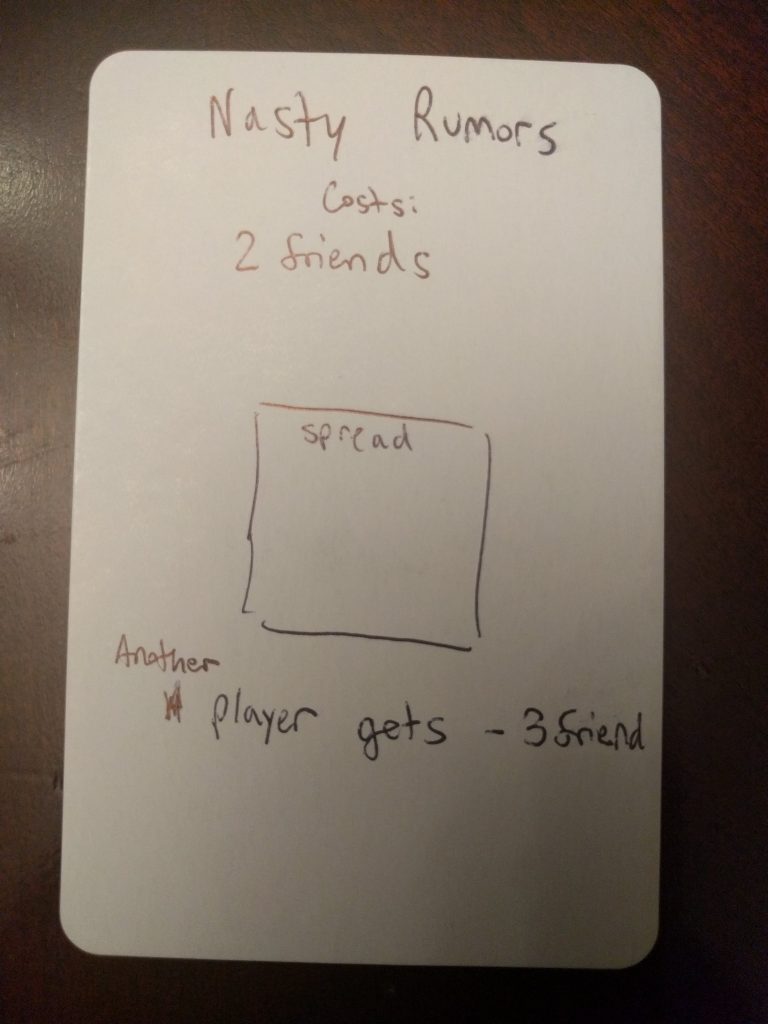 Nasty Rumors
Costs:
2 friends
spread
Another
player gets - 3 friend